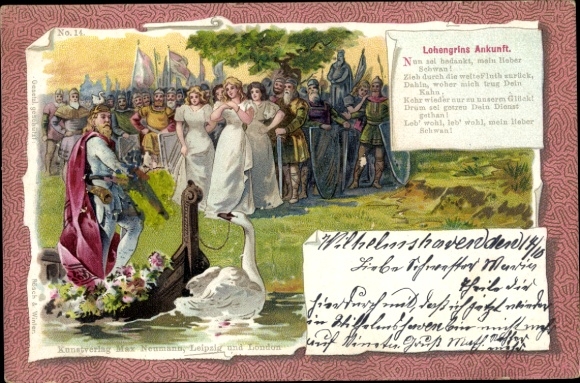 No. 14.
Gesetzl. geschützt.
Lohengrins Ankunft.
Nun sei bedankt, mein lieber
Schwan!
Zieh durch die weite Flut zurück,
Dahin, woher mich trug Dein
Kahn,
Kehr wieder nur zu unserm Glück!
Drum sei getreu Dein Dienst
gethan!
Leb' wohl, leb' wohl, mein lieber
Schwan!
Wilhelmshaven den
Liebe Schwester Marie
Theile dir
hierdurch mit, daß ich jetzt wieder
in Wilhelmshaven bin und nicht
auf Gruß
Kunstverlag Max Neumann, Leipzig und London